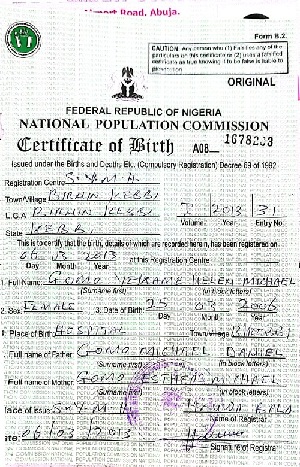 Airport Road, Abuja.
Form B.2
CAUTION: Any person who (1) Falsifies any of the
particulars on this certificate or (2) uses a falsified
certificate as true knowing it to be false is liable to
prosecution
ORIGINAL
FEDERAL REPUBLIC OF NIGERIA
NATIONAL POPULATION COMMISSION
Certificate of Birth A08
Issued under the Births and Deaths Etc. (Compulsory Registration) Decree 69 of 1992
Registration Centre S.Y.M.H.
Town/Village BIRNIN KEBBI
L.G.A BIRNIN KEBBI 7 2013 31
Volume Year Entry No
State KEBBI
This is to certify that the birth, details of which are recorded herein, has been registered on
2013 at this Registration Centre
Day Month Year
1. Full Name: GOMO HELEN MICHAEL
(Surname first) (in block letters)
2. Sex: FEMALE 3. Date of Birth: 25 03 2006
Day Month Year
Place of Birth: HOSPITAL Town/Village B/KEBBI
Full name of Father: GOMO MICHAEL DANIEL
(Surname first) (in block letters)
Full name of Mother: GOMO ESTHER MICHAEL
(Surname first) (in block letters)
Place of Issue: S.Y.M.H
Name of Registrar
Date: 06 03 2013
Signature of Registrar